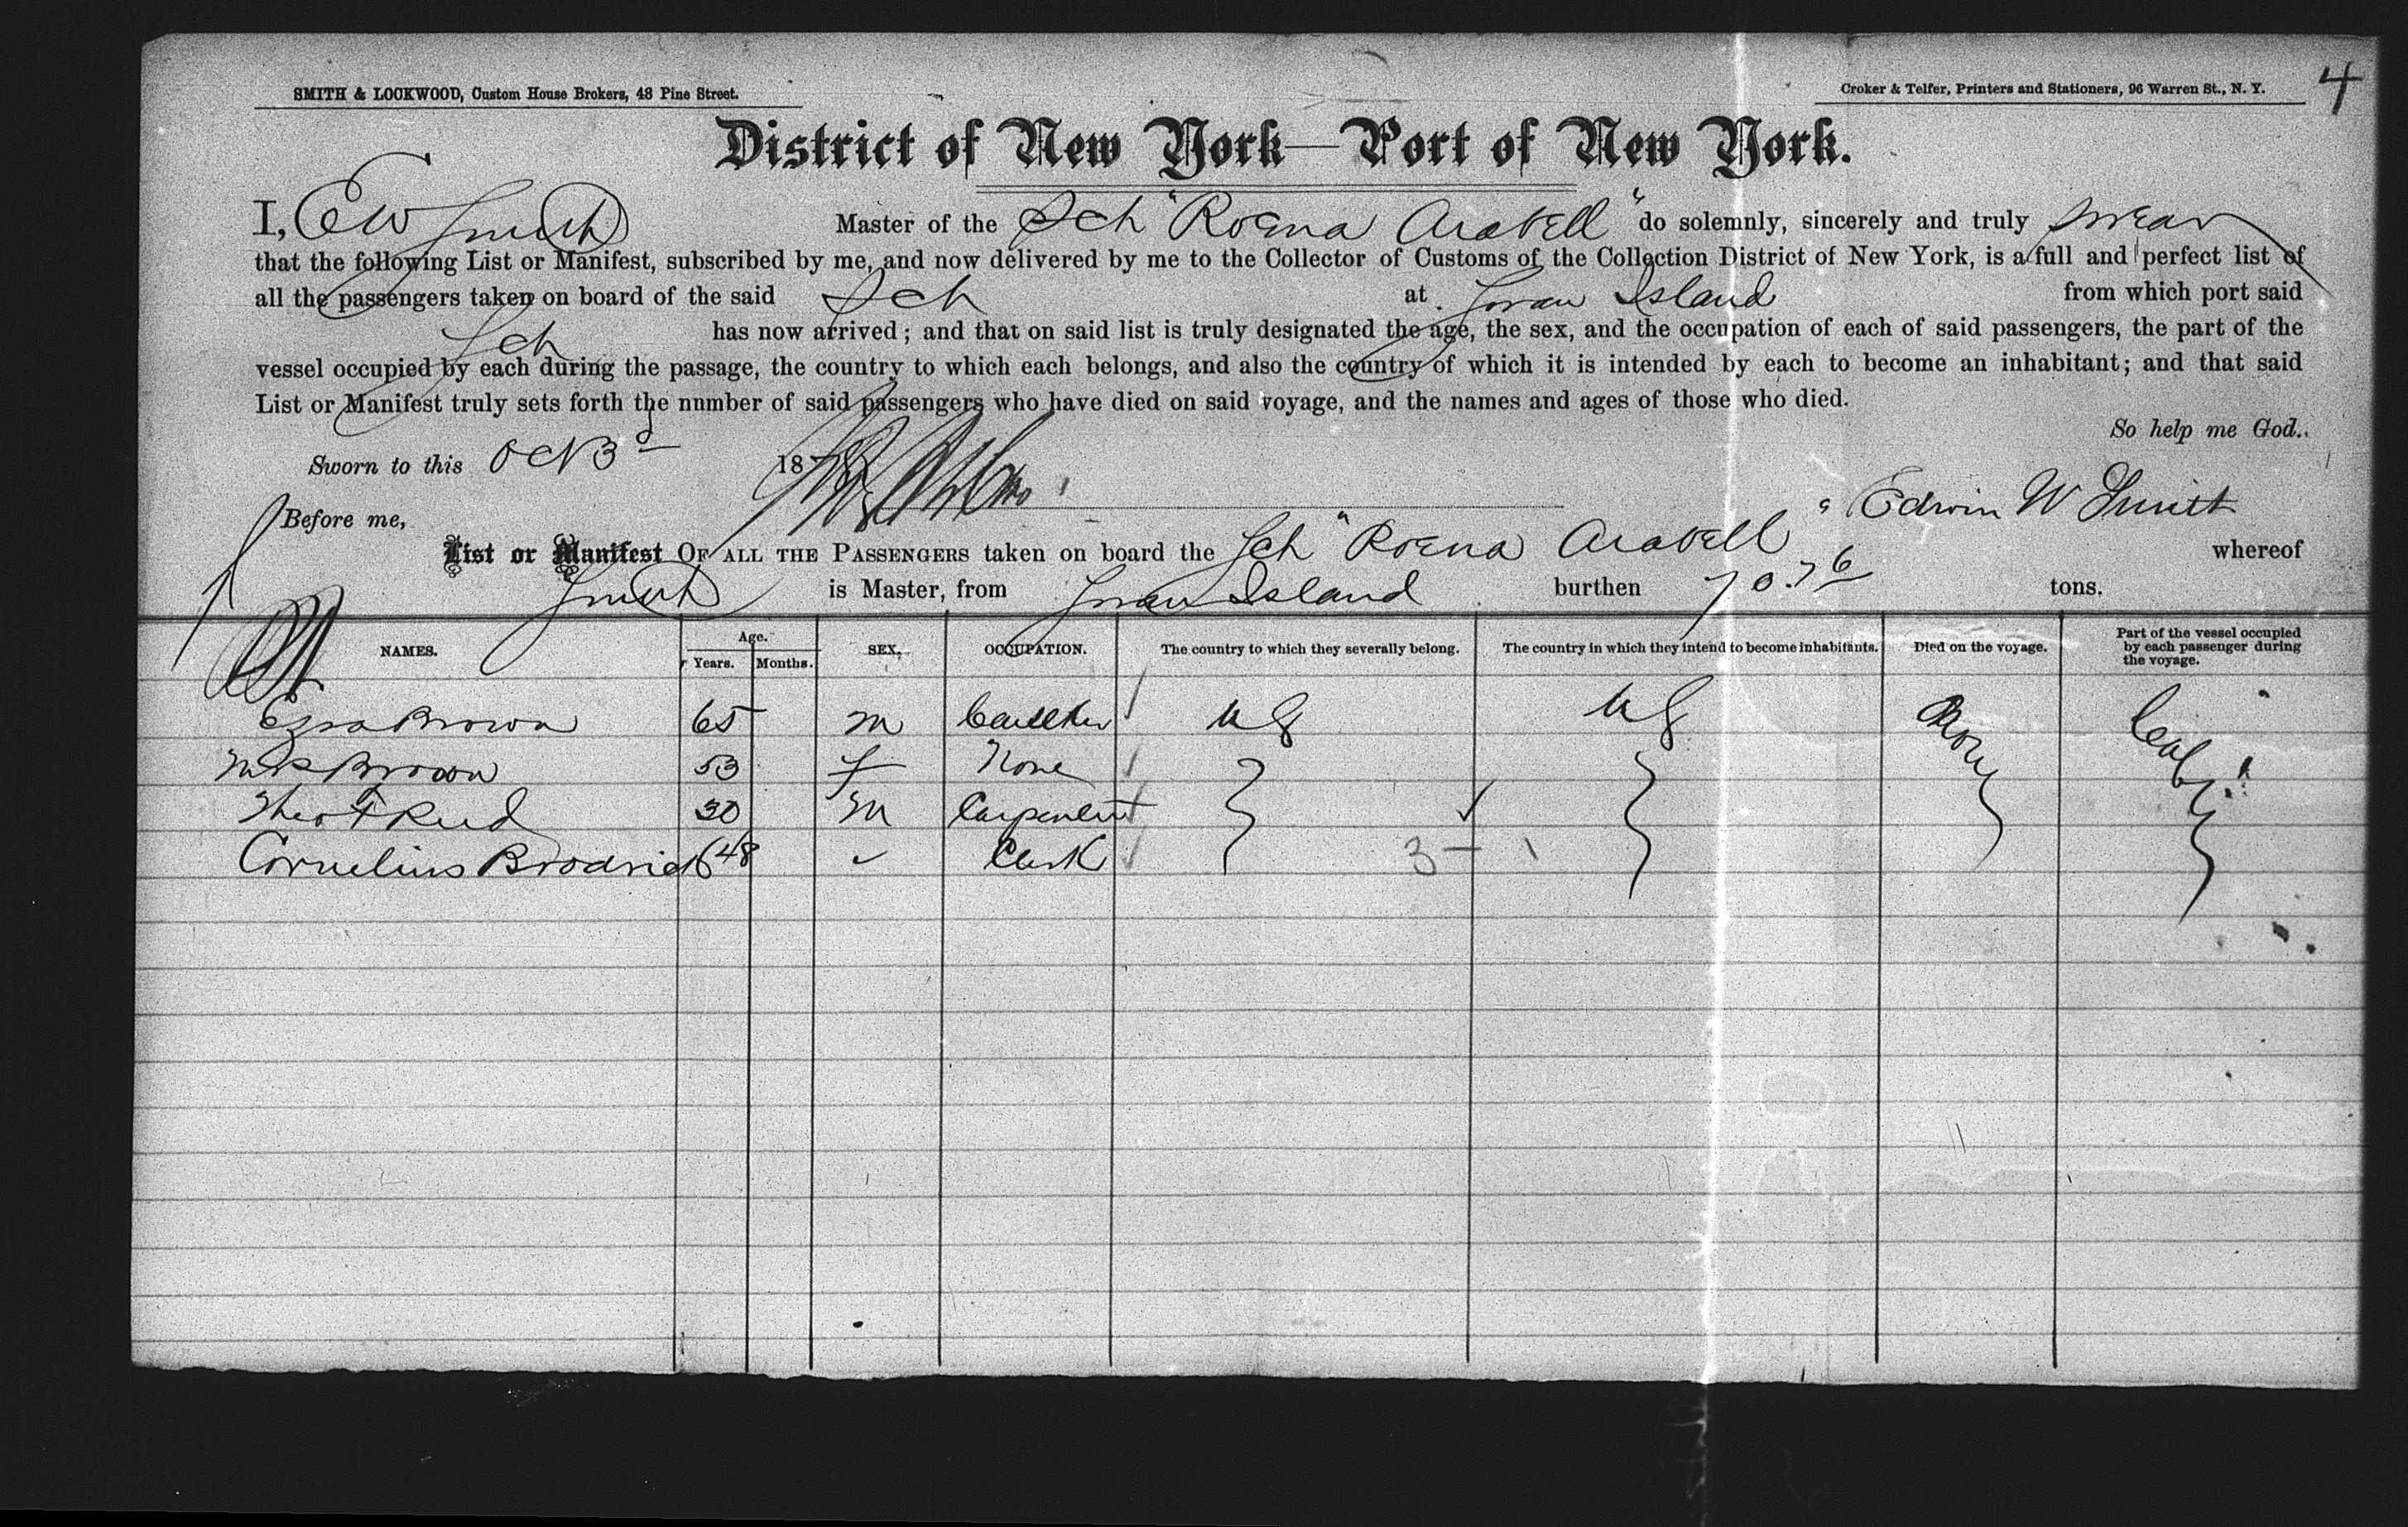 SMITH & LOCKWOOD, Custom House Brokers, 48 Pine Street.
Croker & Telfer, Printers and Stationers, 96 Warren St., N. Y.
4
District of New York—Port of New York.
I, E W Smith Master of the Sch "Roena Arabell" do solemnly, sincerely and truly swear
that the following List or Manifest, subscribed by me, and now delivered by me to the Collector of Customs of the Collection District of New York, is a full and perfect list of
all the passengers taken on board of the said Sch at Island from which port said
Sch has now arrived; and that on said list is truly designated the age, the sex, and the occupation of each of said passengers, the part of the
vessel occupied by each during the passage, the country to which each belongs, and also the country of which it is intended by each to become an inhabitant; and that said
List or Manifest truly sets forth the number of said passengers who have died on said voyage, and the names and ages of those who died.
So help me God.
Sworn to this Oct 3d 1878
Before me,
Edwin W Smith
List or Manifest OF ALL THE PASSENGERS taken on board the Sch "Roena Arabell" whereof
Smith is Master, from Island burthen 70.76 tons.
NAMES. Age. Years. Months. SEX. OCCUPATION. The country to which they severally belong. The country in which they intend to become inhabitants. Died on the voyage. Part of the vessel occupied by each passenger during the voyage.
Ezra Brown 65 m Caulker U S U S None Cabin
Mrs Brown 53 f None
Theo F Reed 30 m Carpenter
Cornelius Brodrick 48 Clerk 3